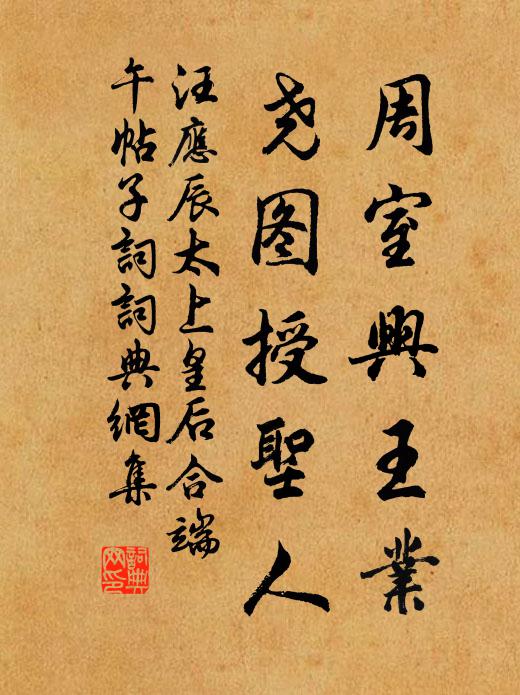 周室興王業
尧图授聖人
汪應辰太上皇后合端
午帖子詞詞典網集
詞典網印